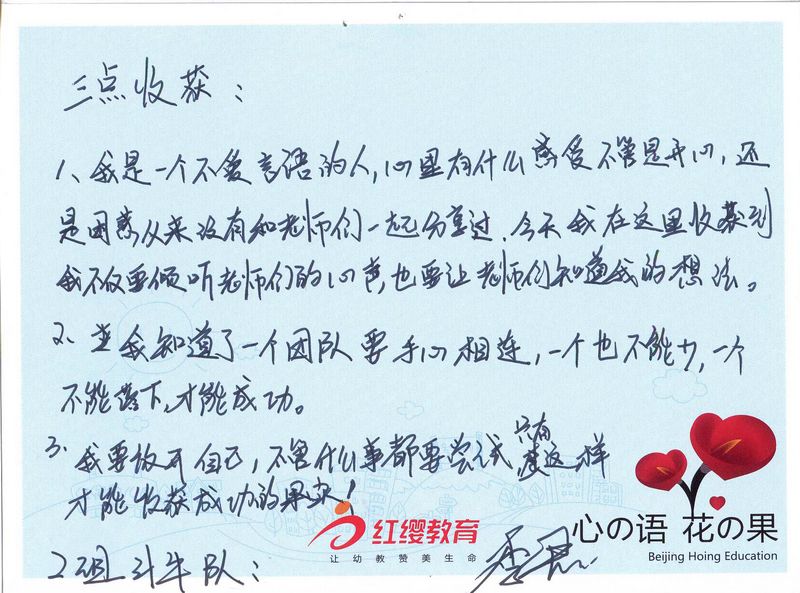 三点收获：
1、我是一个不爱言语的人，心里有什么感受不管是开心，还
是困惑从来没有和老师们一起分享过．今天我在这里收获到
我不仅要倾听老师们的心声，也要让老师们知道我的想法。
2、 我知道了一个团队要手心相连，一个也不能少，一个
不能落下，才能成功。
3、我要放开自己，不管什么事都要尝试只有这样
才能收获成功的果实！
红缨教育
让幼教赞美生命
心の语 花の果
Beijing Hoing Education
2组斗牛队：